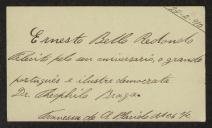 Ernesto Bello Redondo
felicita pelo seu aniversário, o grande
português e ilustre democrata
Dr. Theophilo Braga